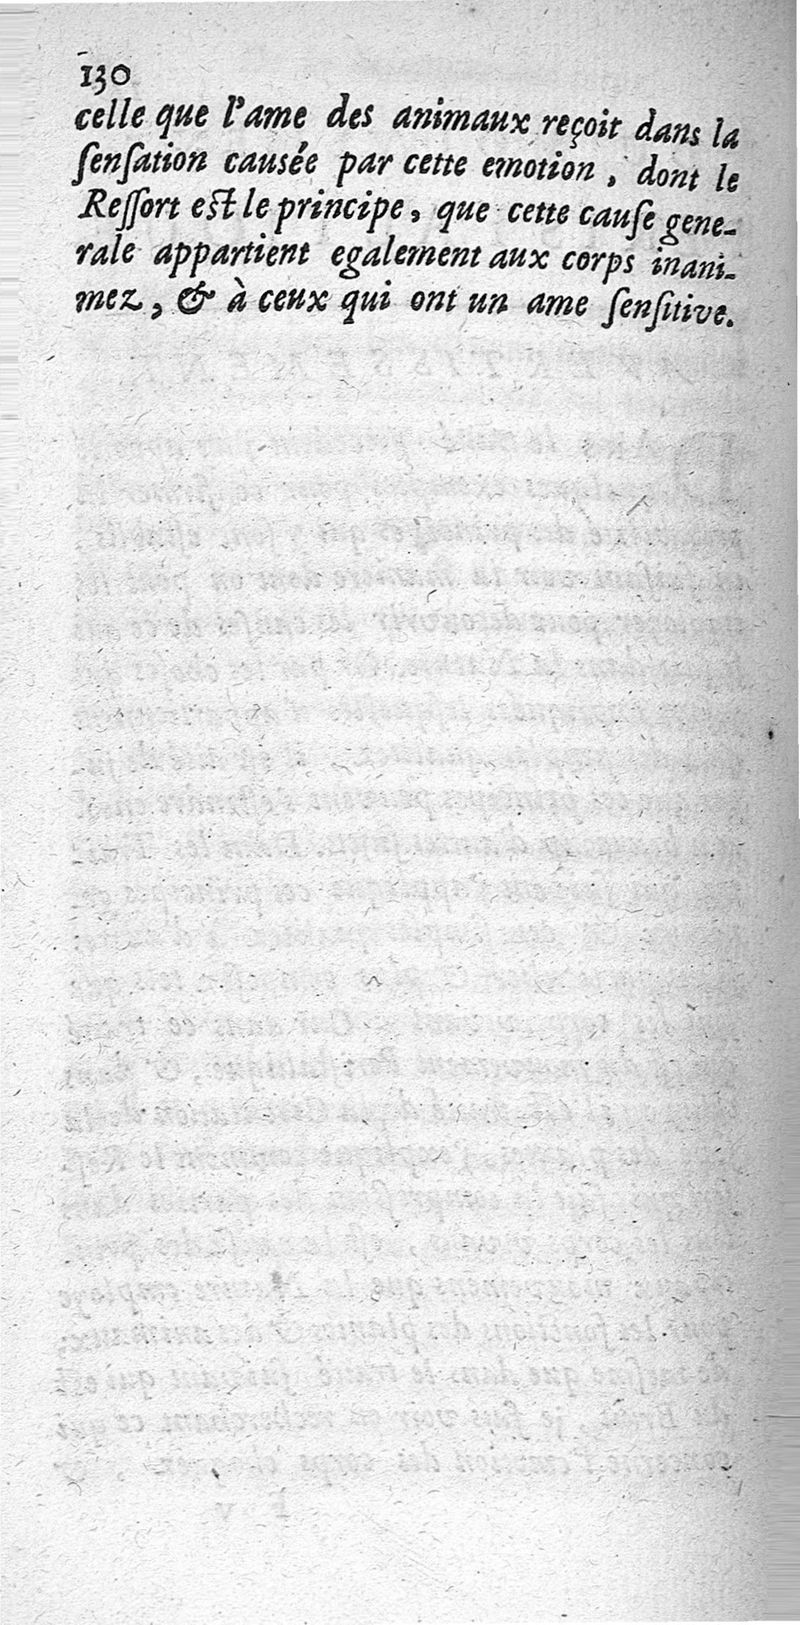 130
celle que l'ame des animaux reçoit dans la
ſenſation causée par cette emotion, dont le
Reſſort eſt le principe, que cette cauſe gene-
rale appartient egalement aux corps inani-
mez, & à ceux qui ont un ame ſenſitive.